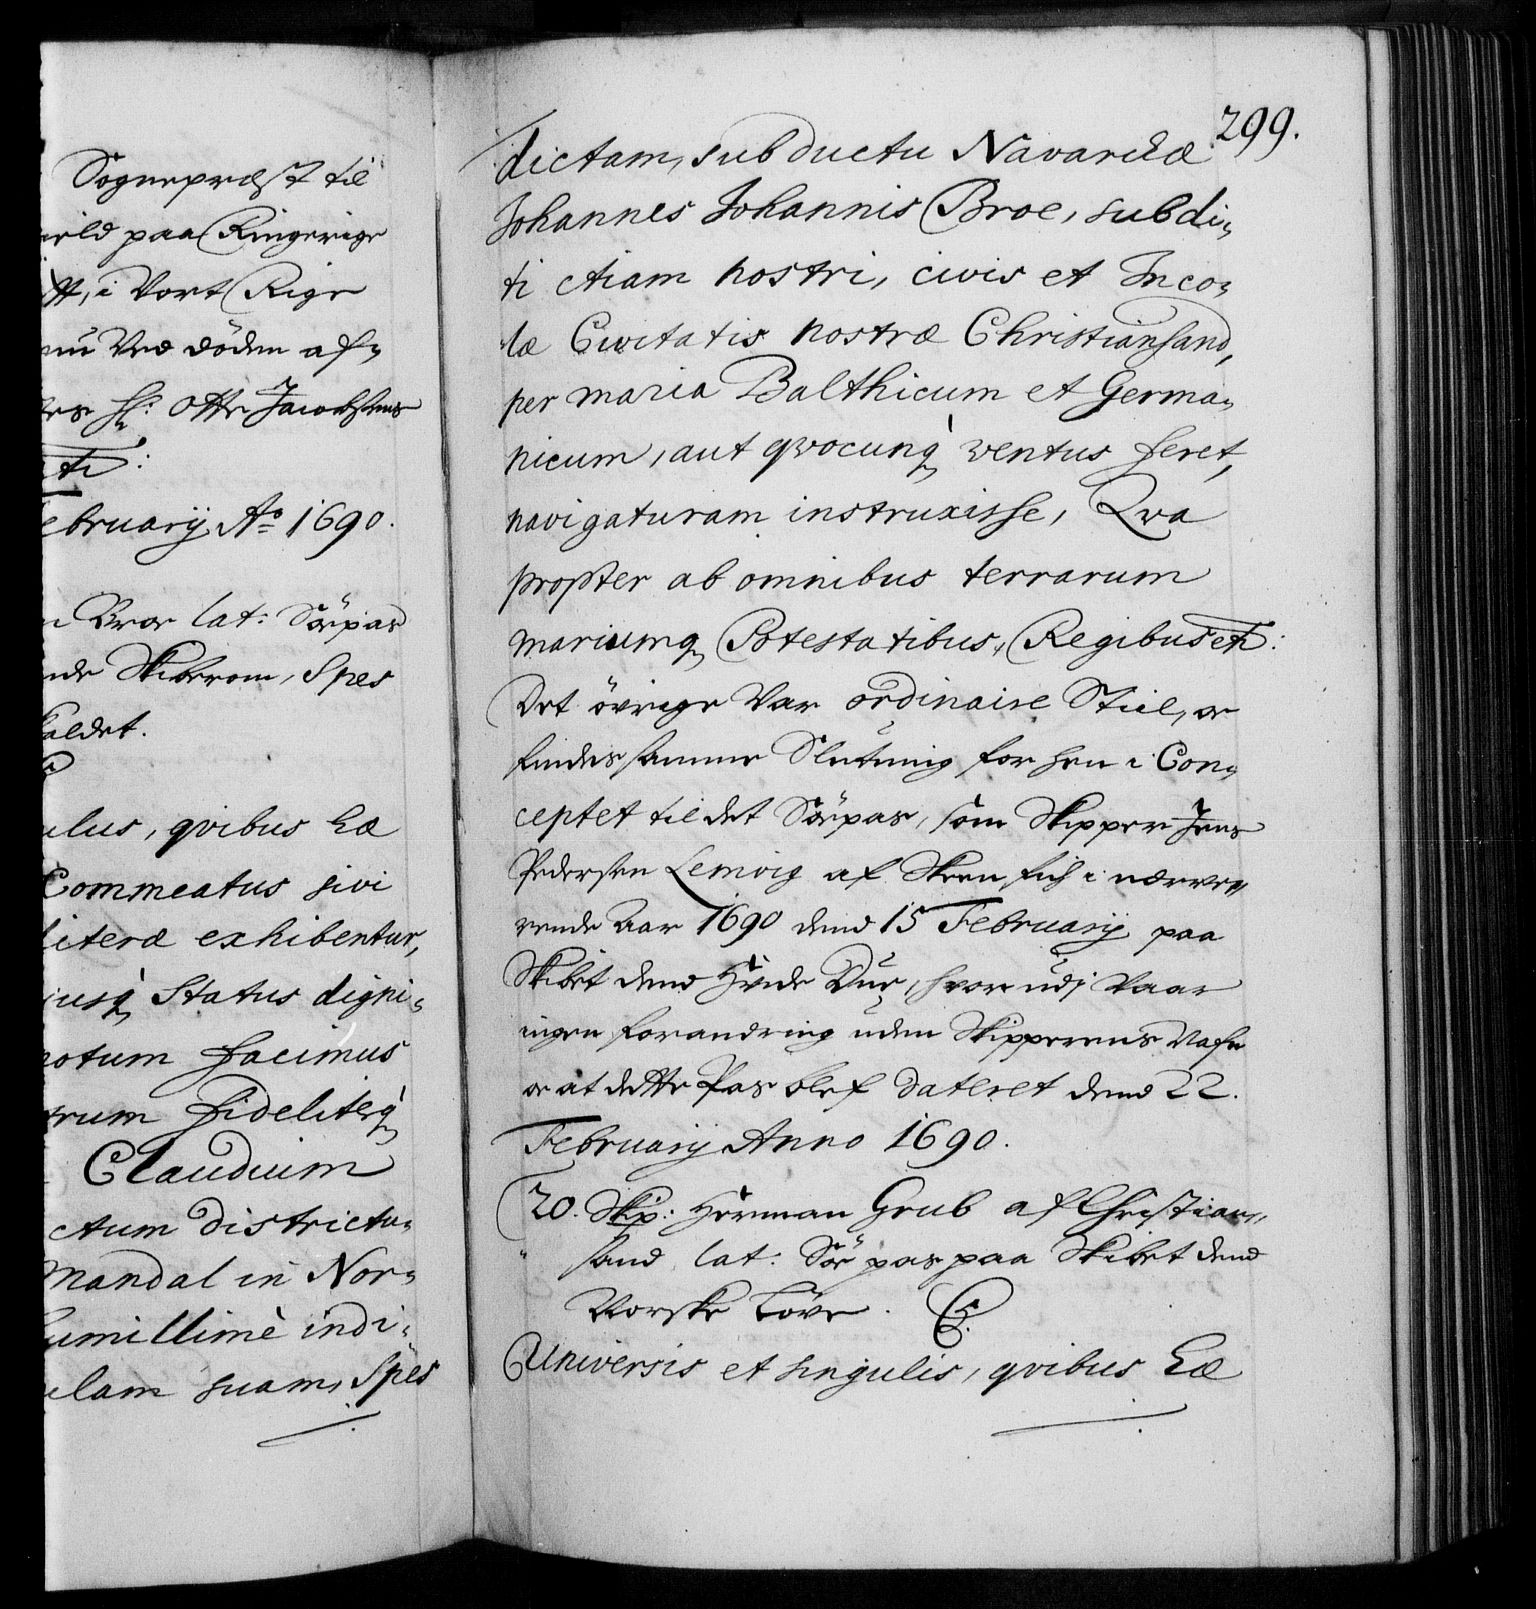 Sognepræst til
ield paa Ringerige
tt, i Vort Rige
nu Ved döden af-
res Hr: Otte Jacobsens
etc:
ebruarij Ao 1690.
n Broe lat: Söepas
nde Skibrom, Spes
kaldet.
ulus, qvibus hæ
Commeatus sivi
literæ exhibentur,
iusq Status digni-
notum facimus
trum fideliterq
Claudium
ctum districtu-
Mandal in Nor-
humillimè indi-
ulam suam, Spes
299.
dictam, sub ductu Navarchæ
Johannes Johannis Broe, subdi-
ti etiam nostri, civis et Inco-
læ Civitatis nostræ Christiansand,
per maria Balthicum et Germa-
nicum, aut qvocunq ventus feret,
navigaturam instruxisse, Qva
propter ab omnibus terrarum
mariumq Potestatibus, Regibus etc:
Det övrige Var ordinaire Stiil, oc
findes samme Slutning for hen i Con-
ceptet til det Söepas, som Skipper Jens
Pedersen Lemvig af Skeen fich i nærve-
rende Aar 1690 dend 15 Februarij paa
Skibet dend Hvide Due, hvor udj Vaar
ingen forandring uden Skipperens Nafn
oc at dette Pas blef dateret dend 22.
Februarij Anno 1690.
20. Skip: Herman Grub af Christian-
sand lat: Söe pas paa Skibet dend
Norske Löve. C5.
Universis et singulis, qvibus hæ